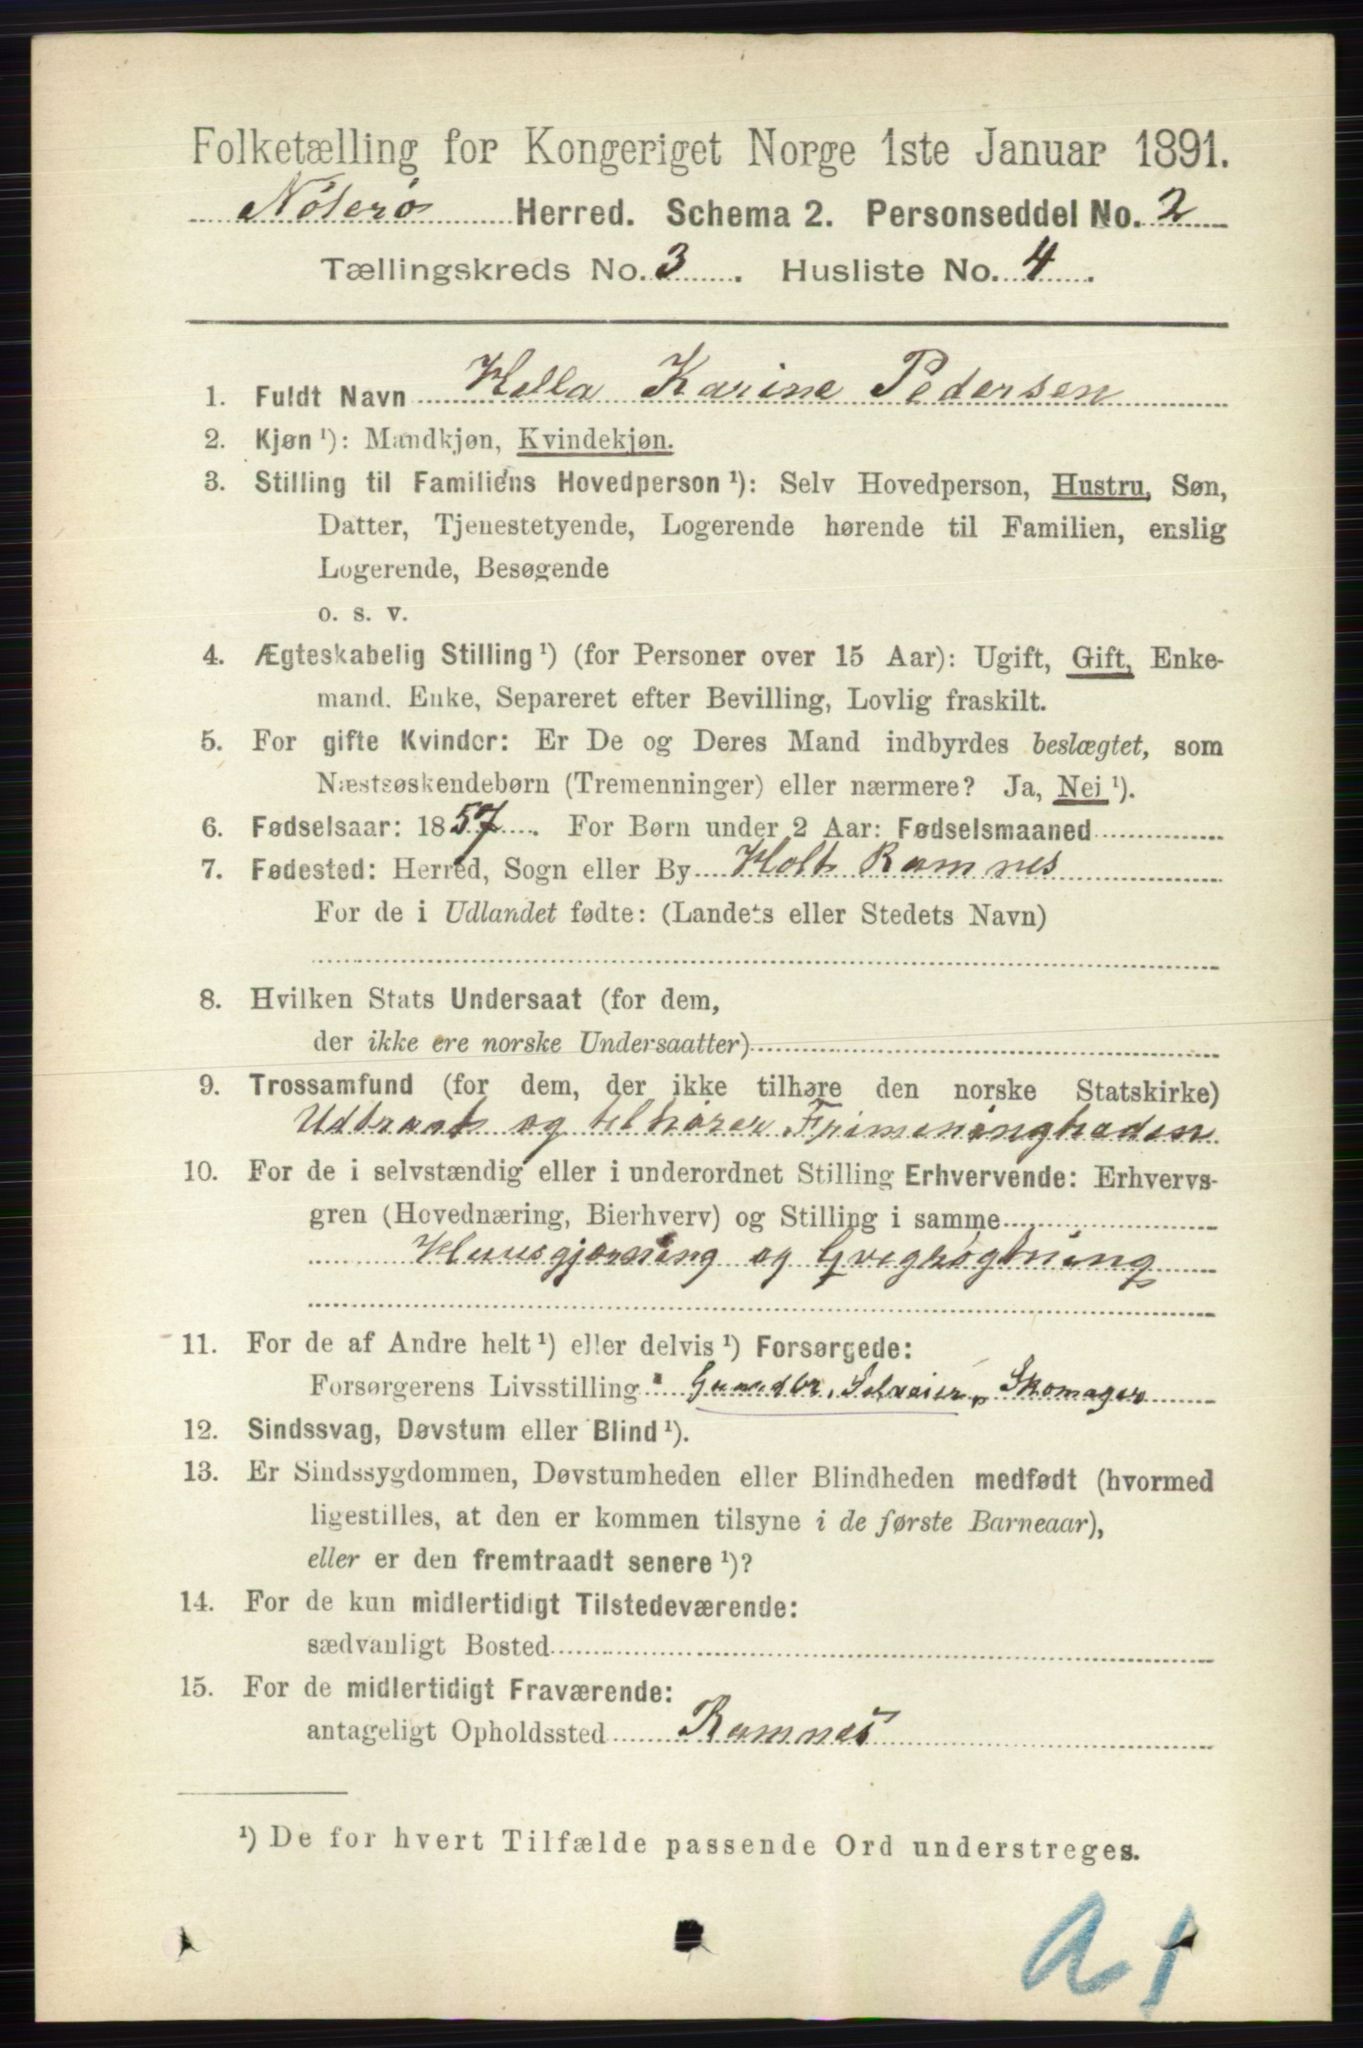 Folketælling for Kongeriget Norge 1ste Januar 1891.
Nøterø Herred. Schema 2. Personseddel No. 2
Tællingskreds No. 3. Husliste No. 4.
1. Fuldt Navn Hella Karine Pedersen
2. Kjøn ¹): Mandkjøn, Kvindekjøn.
3. Stilling til Familiens Hovedperson ¹): Selv Hovedperson, Hustru, Søn,
Datter, Tjenestetyende, Logerende hørende til Familien, enslig
Logerende, Besøgende
o. s. v.
4. Ægteskabelig Stilling ¹) (for Personer over 15 Aar): Ugift, Gift, Enke-
mand, Enke, Separeret efter Bevilling, Lovlig fraskilt.
5. For gifte Kvinder: Er De og Deres Mand indbyrdes beslægtet, som
Næstsøskendebørn (Tremenninger) eller nærmere? Ja, Nei ¹).
6. Fødselsaar: 1857. For Børn under 2 Aar: Fødselsmaaned
7. Fødested: Herred, Sogn eller By Holt Ramnes
For de i Udlandet fødte: (Landets eller Stedets Navn)
8. Hvilken Stats Undersaat (for dem,
der ikke ere norske Undersaatter)
9. Trossamfund (for dem, der ikke tilhøre den norske Statskirke)
Udtraat og telhører Frimeninghaden
10. For de i selvstændig eller i underordnet Stilling Erhvervende: Erhvervs-
gren (Hovednæring, Bierhverv) og Stilling i samme
Huusgjørning og
11. For de af Andre helt ¹) eller delvis ¹) Forsørgede:
Forsørgerens Livsstilling Gaardbr. Selveier, Skomager
12. Sindssvag, Døvstum eller Blind ¹).
13. Er Sindssygdommen, Døvstumheden eller Blindheden medfødt (hvormed
ligestilles, at den er kommen tilsyne i de første Barneaar),
eller er den fremtraadt senere ¹)?
14. For de kun midlertidigt Tilstedeværende:
sædvanligt Bosted
15. For de midlertidigt Fraværende:
antageligt Opholdssted Ramnes
¹) De for hvert Tilfælde passende Ord understreges.
a 1